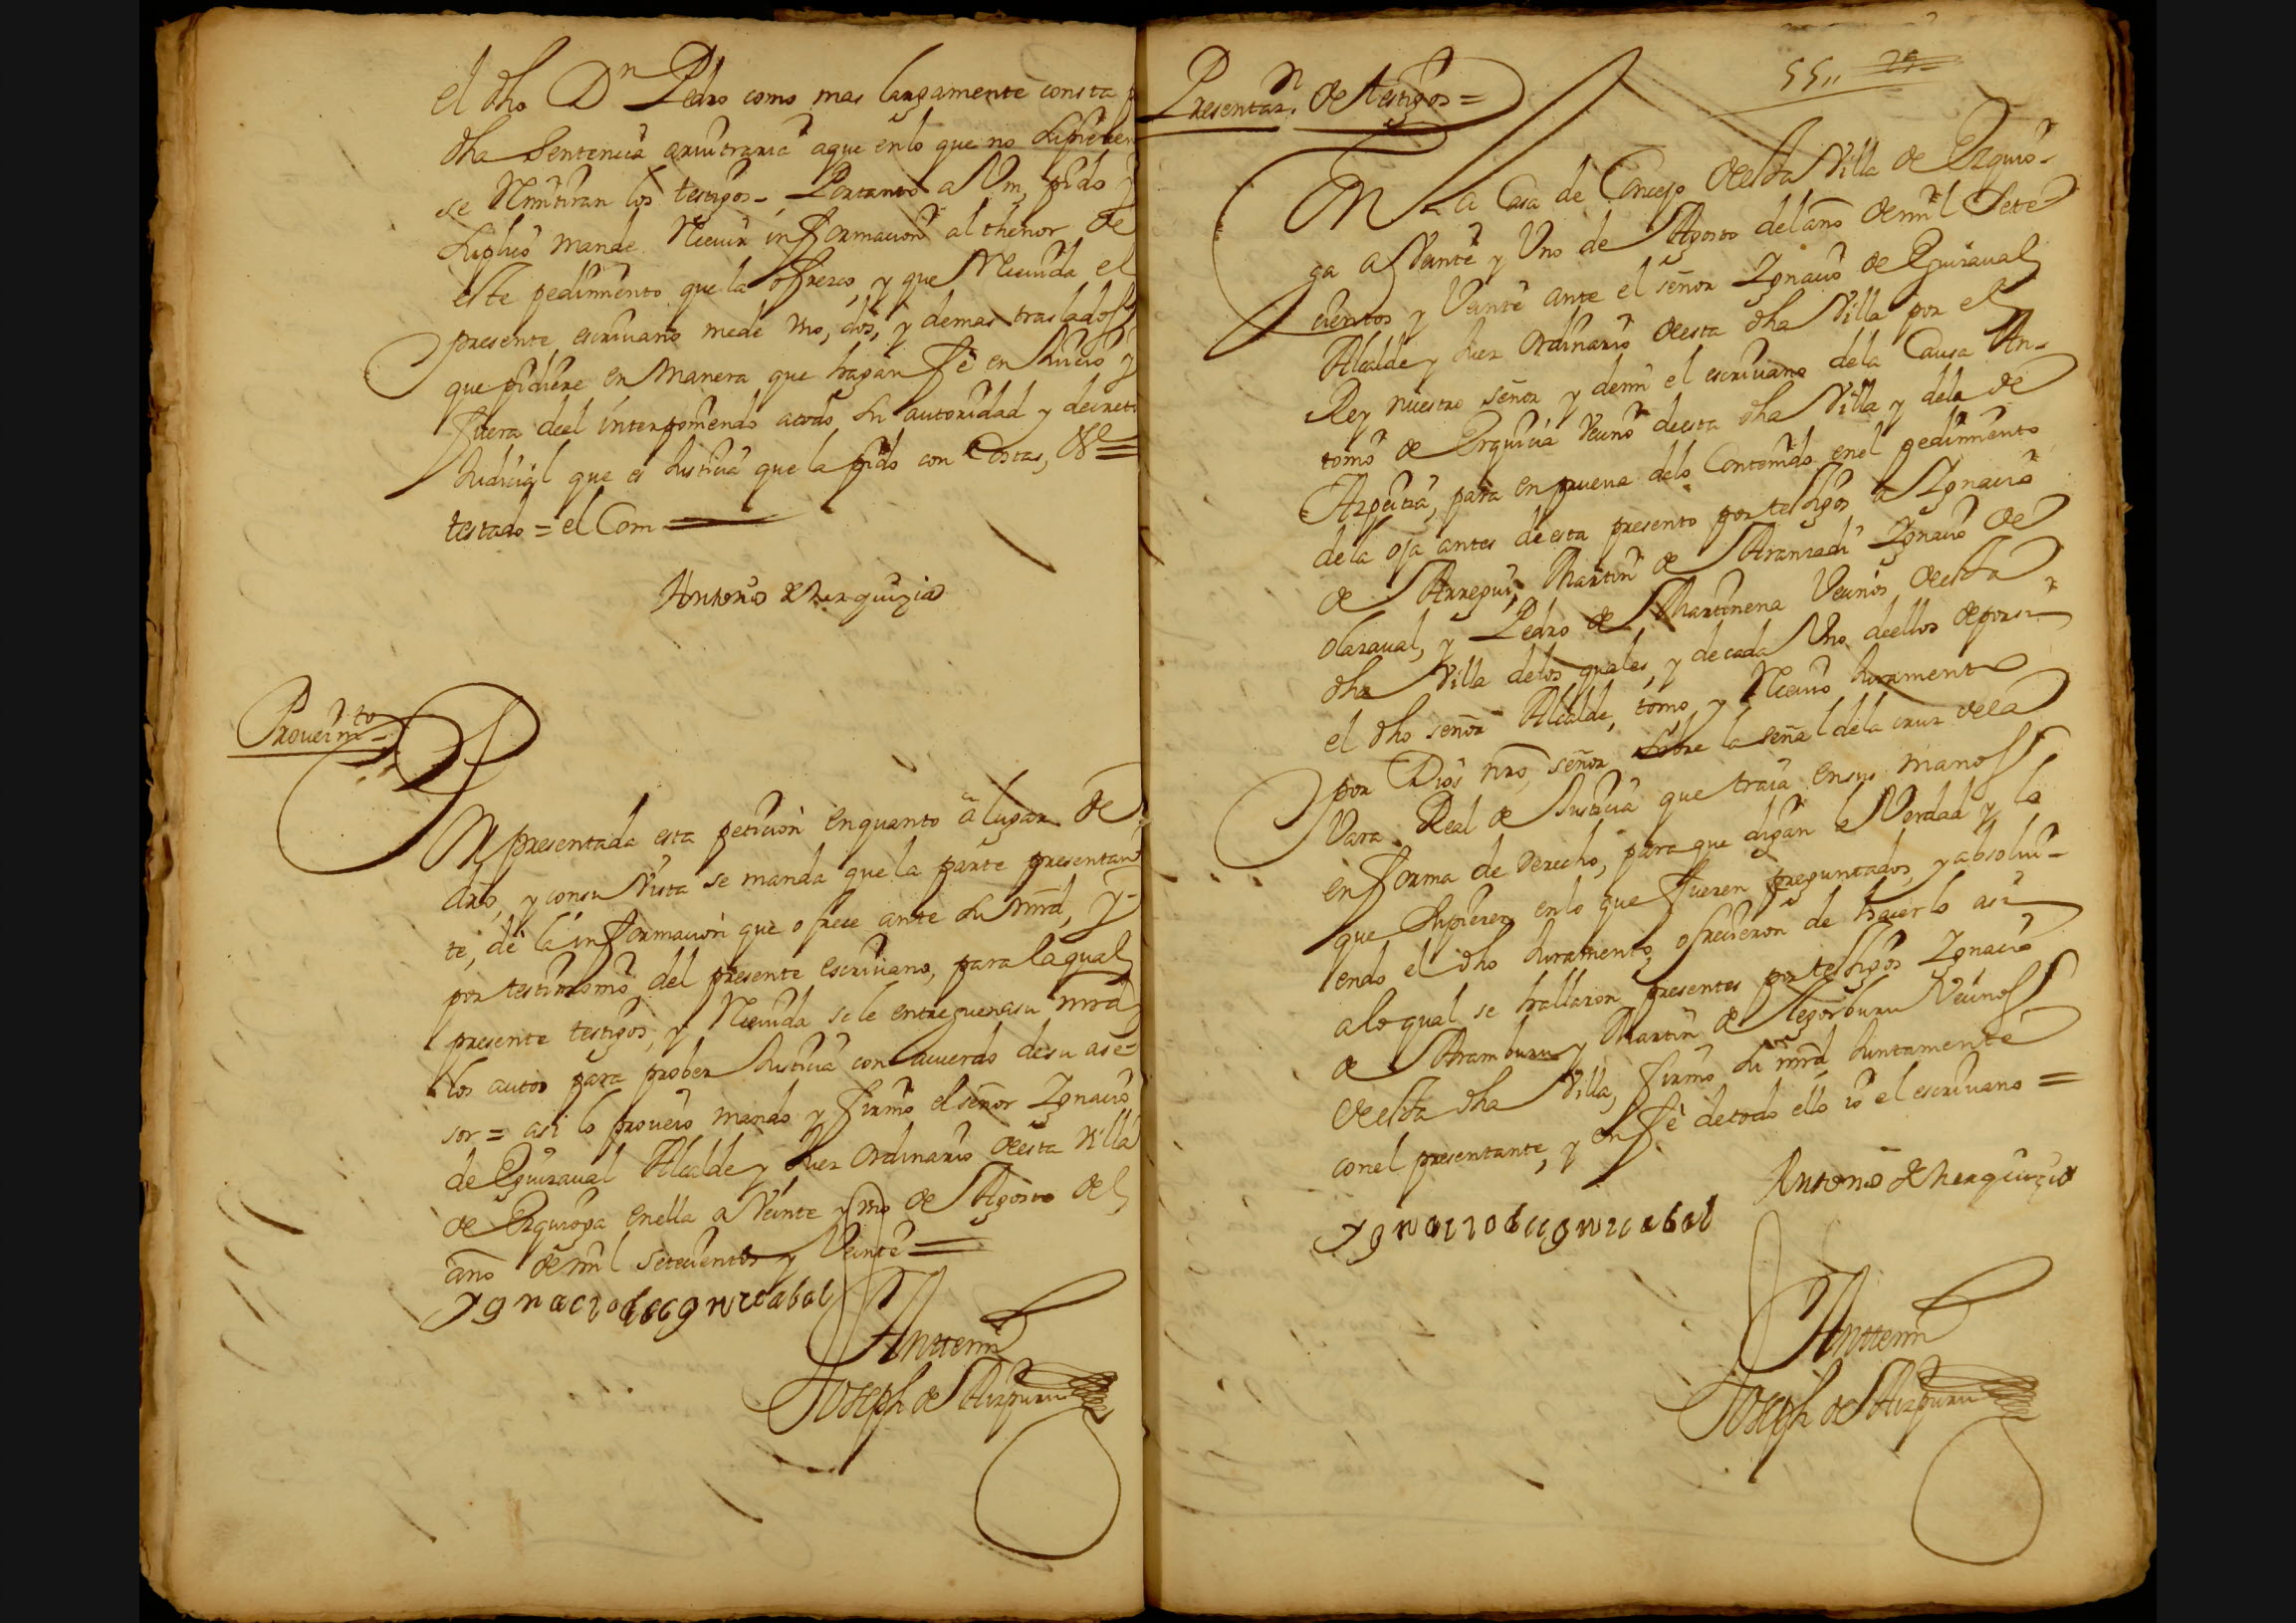 el dho Dn Pedro como mas largamente consta p
dha Sentencia aruitraria aque enlo que no supieren
se Remitiran los testigos, Portanto a Vm, pido y
suplico mande Reciuir informacion al thenor de
este pedimiento que la ofrezco, y que Reciuida el
presente escriuano mede Uno, dos, y demas traslados
que pidiere en manera que hagan fe en Juicio y
fuera deel interponiendo atodo su autoridad y decreto
Judicial que es Justicia que la pido con Costas, &
testado = el Com
Antonio de herquizia
Proueimto
Por presentada esta peticion enquanto a lugar de
dro, y consu Vista se manda que la parte presentan
te, de la informacion que ofrece ante su mrd, y
por testimonio del presente escriuano, para la qual
presente testigos, y Reciuida se le entreguen asu mrd
los autos para probeer Justicia con acuerdo desu ase-
sor = asi lo proueio mando y firmo el señor Ignacio
de Eguizaual Alcalde y Juez Ordinario deesta Villa
de Ezquioga enella a Veinte y uno de Agosto del
año de mil setecientos y Veinte =
ygnacio de eguizabal
Antte mi
Joseph de Aizpuru
55,, 25
Presentazn de testigos =
En la Casa de Concejo deesta Villa de Ezquio-
ga a Veinte y Uno de Agosto del año demil Sete-
cientos y Veinte ante el señor Ignacio de Eguizaual
Alcalde y Juez Ordinario deesta dha Villa por el
Rey nuestro señor y demi el escriuano dela Causa An-
tonio de Erquicia Vecino deesta dha Villa y dela de
Azpeitia, para en prueua delo Contenido enel pedimiento
dela oja antes deesta presento por testigos a Ignacio
de Arregui, Martin de Aranzadi Ignacio de
Olazaual, y Pedro de Martinena Vecinos deesta
dha Villa delos quales, y decada Uno deellos deporsi
el dho señor Alcalde, tomo y Reciuio Juramento
por Dios nro, señor sobre la señal dela cruz dela
Vara Real de Justicia que traia ensus manos
en forma de derecho, para que digan la Verdad y lo
que Supieren enlo que fueren preguntados, y absolui-
endo el dho Juramento, ofrecieron de hacerlo asi
alo qual se hallaron presentes por testigos Ignacio
de Aramburu y Martin de Legorburu Vecinos
deesta dha Villa, firmo su mrd, Juntamente
conel presentante, y en fe detodo ello io el escriuano =
Antonio de herquizia
ygnacio de eguizabal
Antte mi
Joseph de Aizpuru